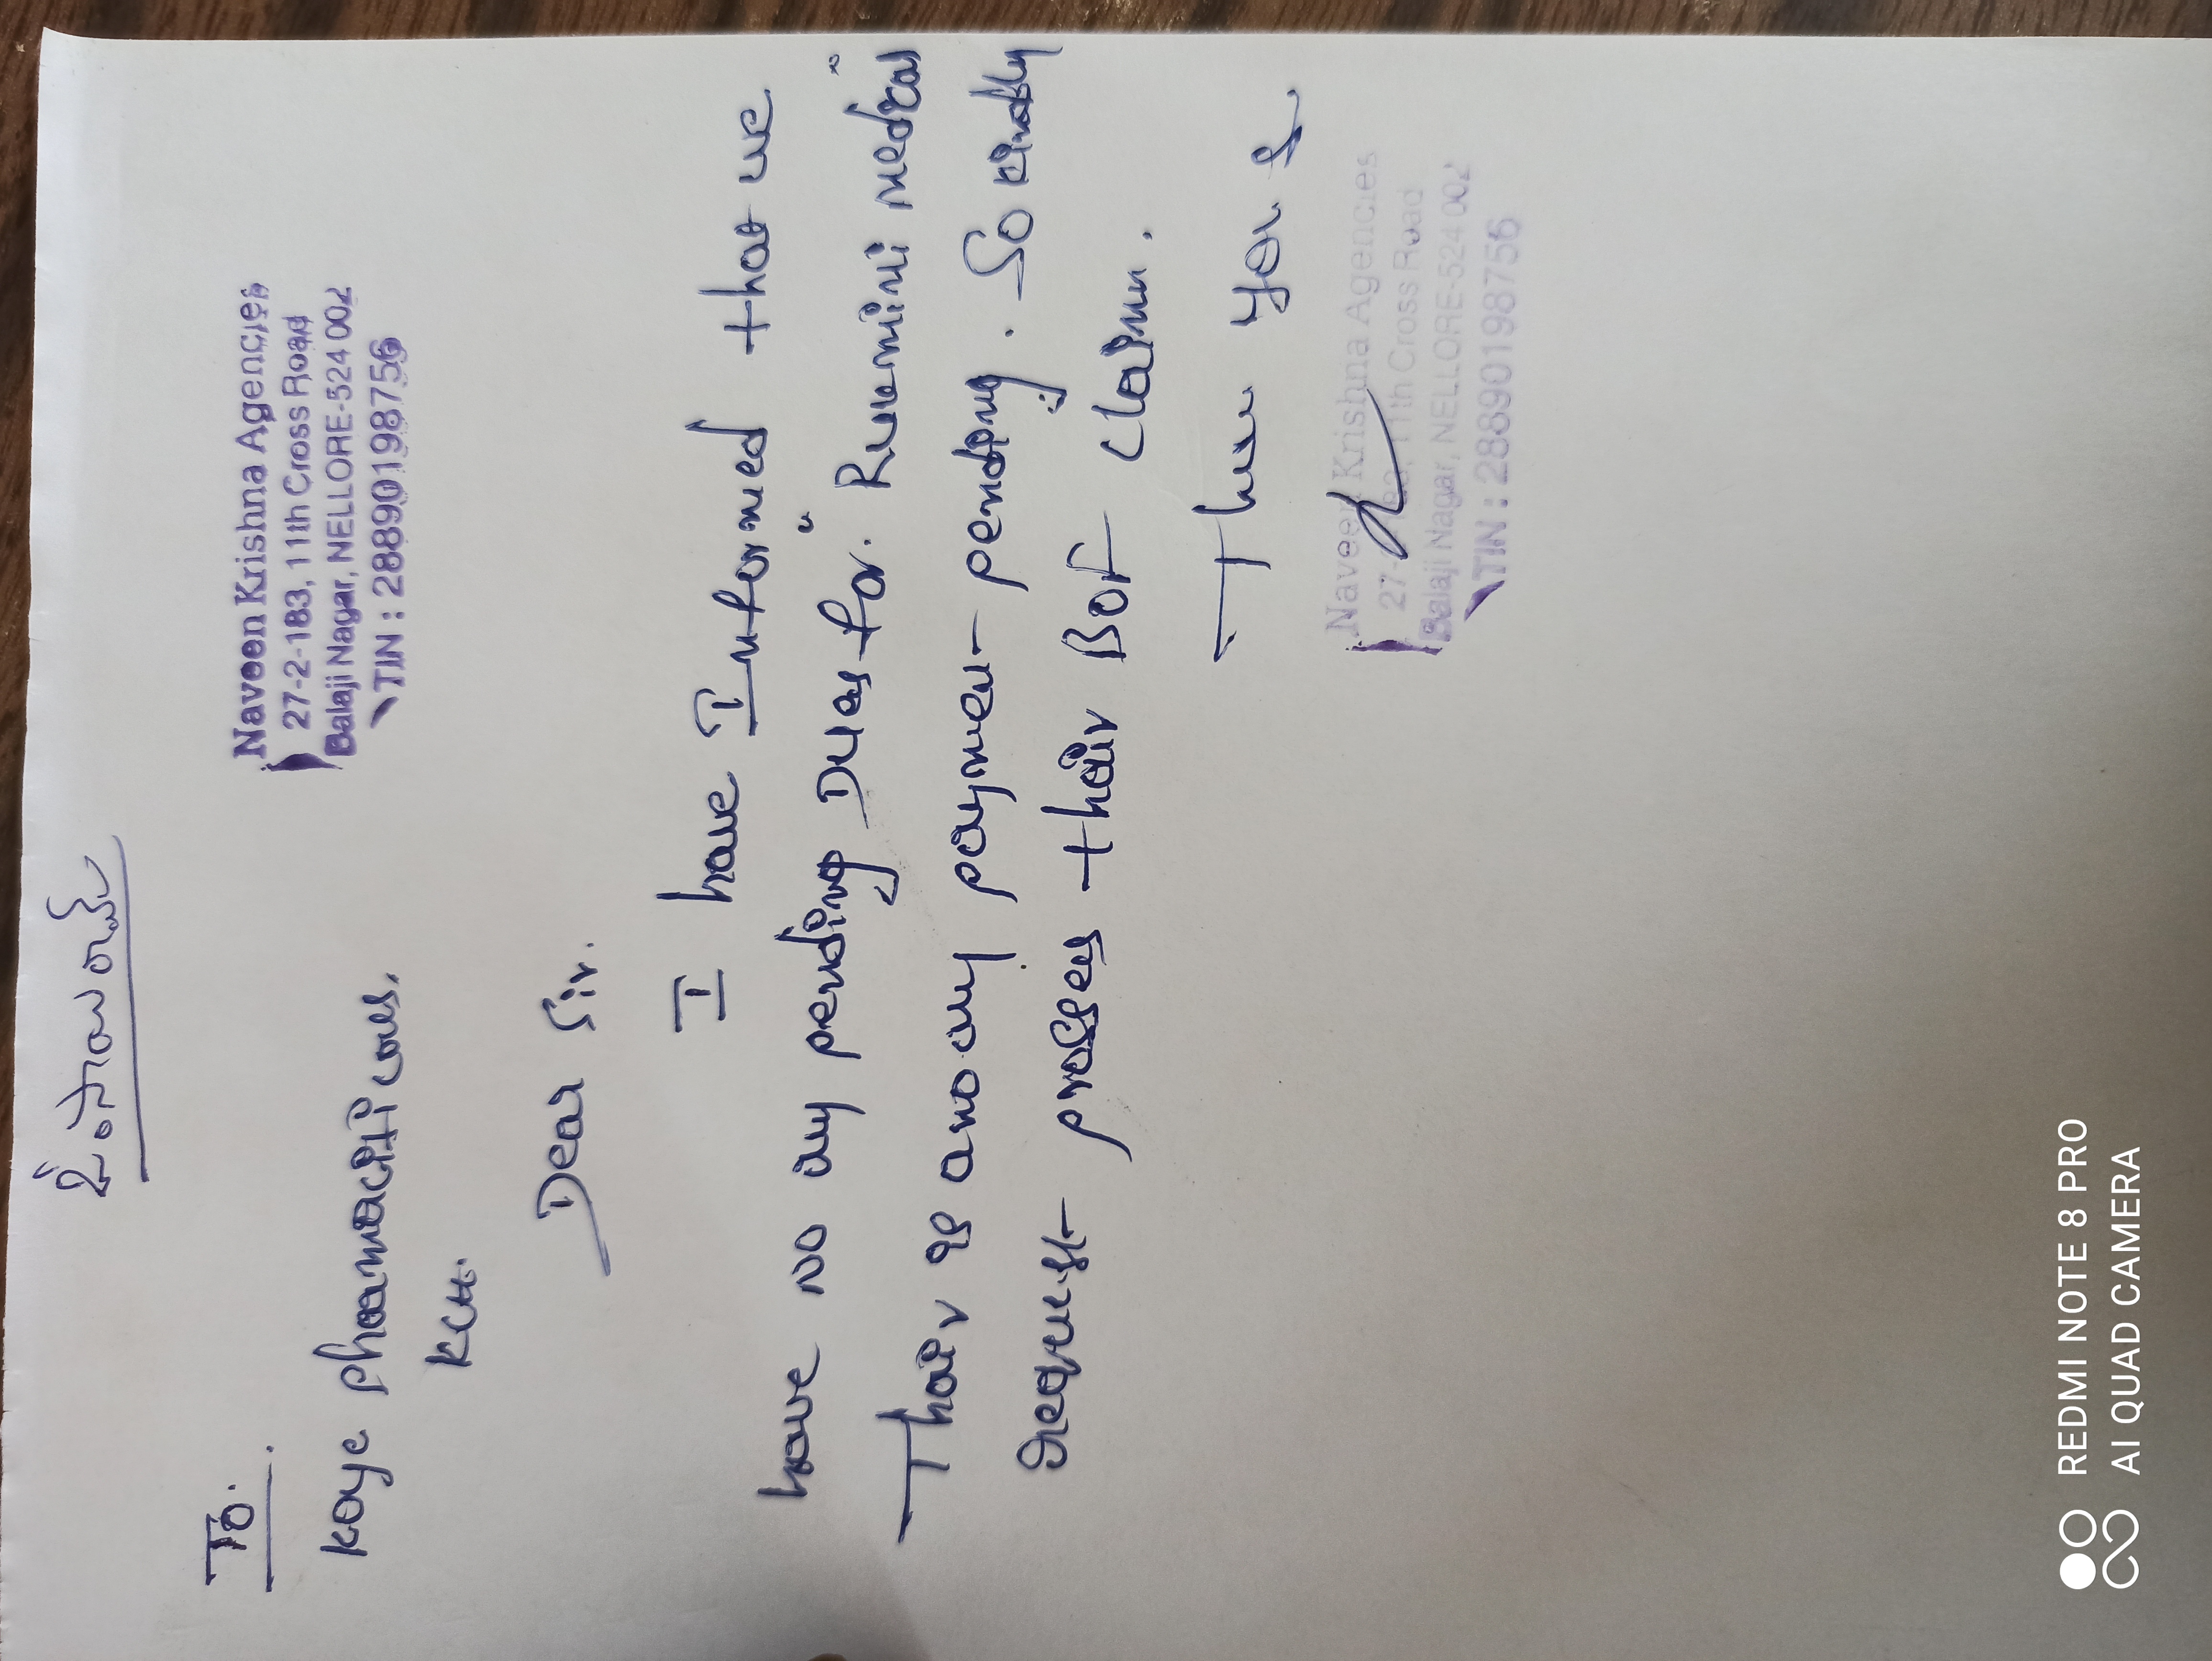 ఓం సాయిరామ్
To.
Naveen Krishna Agencies
27-2-183, 11th Cross Road
Balaji Nagar, NELLORE-524 002
TIN : 28890198756
Koye pharmaciticals,
Dear Sir.
I have Informed that we
have no any pending Dues for. Rukmini medical
Thair is any payment pending. So kindly
request process thair Bot claim.
Than you
Naveen Krishna Agencies
27- 11th Cross Road
Balaji Nagar, NELLORE-524 002
TIN : 28890198756
REDMI NOTE 8 PRO
AI QUAD CAMERA